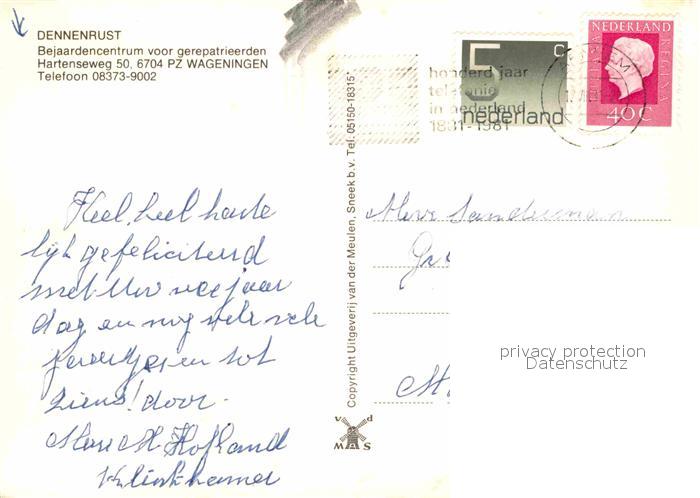 DENNENRUST
Bejaardencentrum voor gerepatrieerden
Hartenseweg 50, 6704 PZ WAGENINGEN
Telefoon 08373-9002
5 C
nederland
NEDERLAND
JULIANA REGINA
40C
honderd jaar
telefonie
in nederland
1881-1981
Copyright Uitgeverij van der Meulen, Sneek b.v. Tel. 05150-18315*
Heel, heel harte
lijk gefeliciteerd
met Uw verjaar
dag en nog vele vele
jaartjes en tot
ziens! door.
Mevr M. Hofland
Klinkhamer
Mevr Sanderman
v d
MAS
privacy protection
Datenschutz